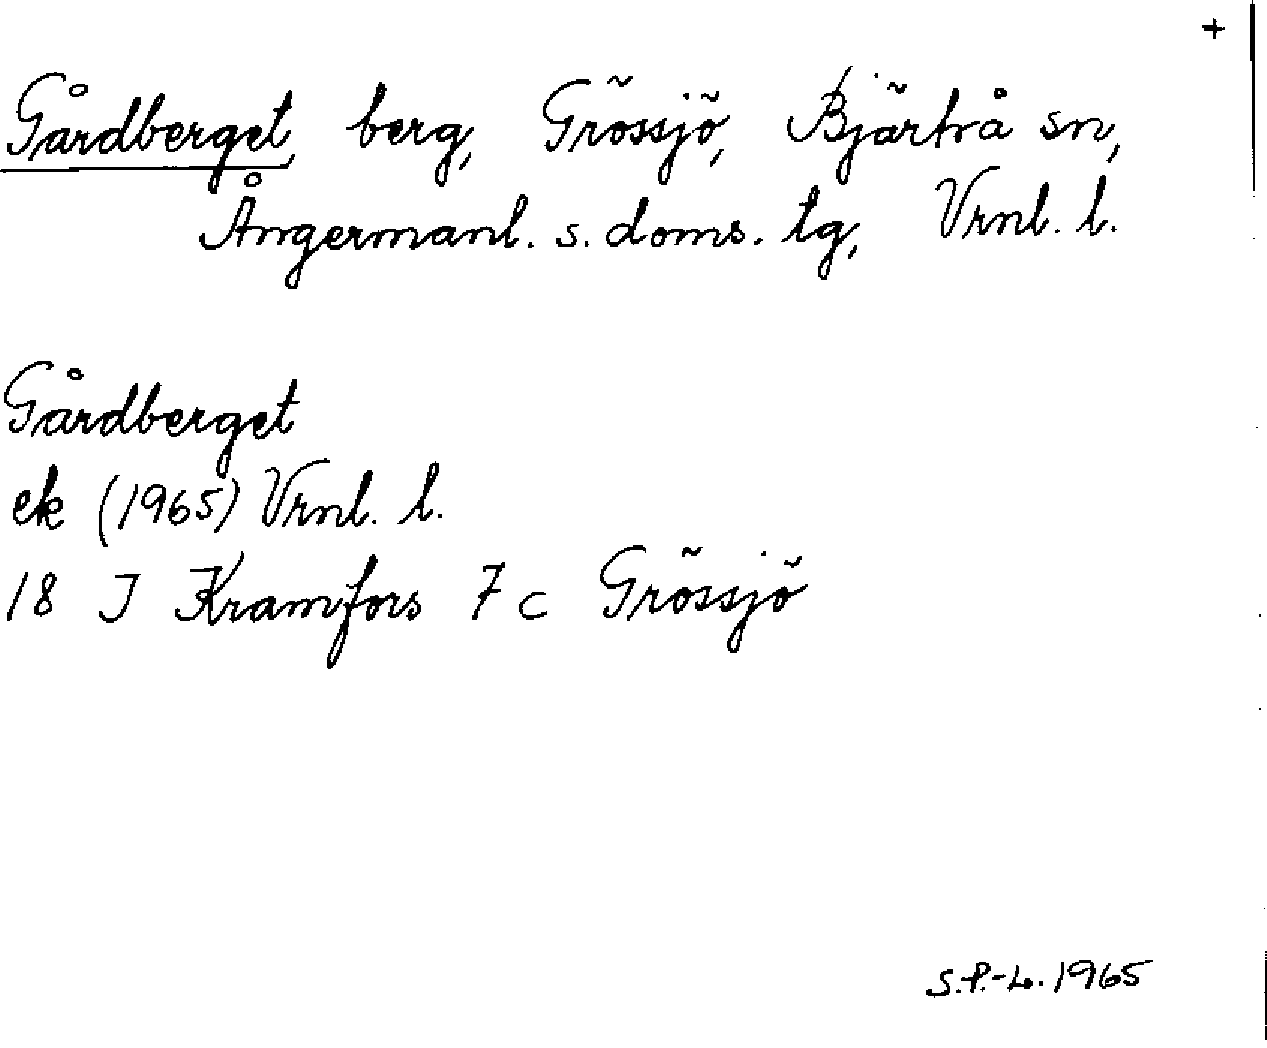 +
Gårdberget, berg, Grössjö, Bjärtrå sn,
Ångermanl. s. doms. tg, Vrnl. l.
Gårdberget
ek (1965) Vrnl. l.
18 J Kramfors 7 c Grössjö
S.P.-L. 1965